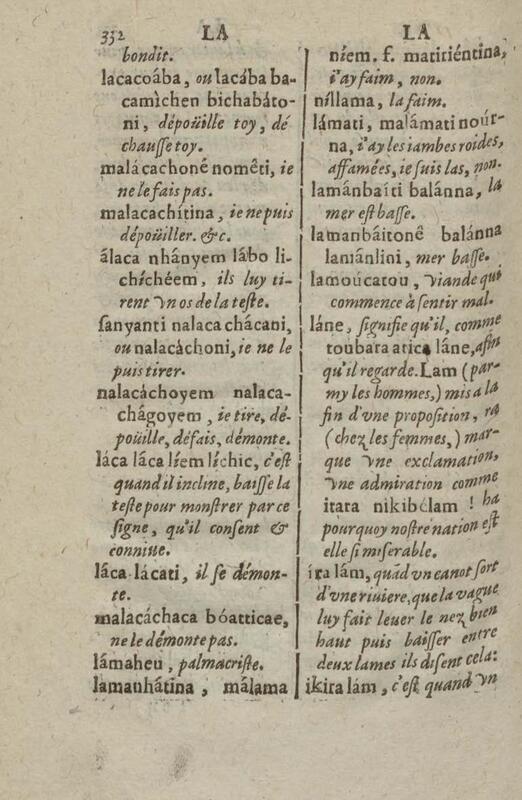 332 LA LA
bondit.
lacacoába, ou lacába ba-
camìchen bichabáto-
ni, dépoüille toy, dé
chausse toy.
malácachoné nomêti, ie
ne le fais pas.
malacachítina, ie ne puis
dépoüiller. &c.
álaca nhányem lábo li-
chíchéem, ils luy ti-
rent vn os de la teste.
sanyanti nalaca chácani,
ou nalacáchoni, ie ne le
puis tirer.
nalacáchoyem nalaca-
chágoyem, ie tire, dé-
poüille, défais, démonte.
láca láca líem líchic, c'est
quand il incline, baisse la
teste pour monstrer par ce
signe, qu'il consent &
conniue.
láca lácati, il se démon-
te.
malacáchaca bóatticae,
ne le démonte pas.
lámaheu, palma criste.
lamanhátina, málama
níem. f. matiriéntina,
i'ay faim, non.
níllama, la faim.
lámati, malámati noúr-
na, i'ay les iambes roides,
affamées, ie suis las, non.
lamánbaíti balánna, la
mer est basse.
lamanbáitonê balánna
lamánlini, mer basse.
lamoúcatou, viande qui
commence à sentir mal.
láne, signifie qu'il, comme
toubara atica láne, afin
qu'il regarde. Lam (par-
my les hommes,) mis a la
fin d'vne proposition, ra
(chez les femmes,) mar-
que vne exclamation,
vne admiration comme
itara nikibélam ! ha
pourquoy nostre nation est
elle si miserable.
íra lám, quãd vn canot sort
d'vne riuiere, que la vague
luy fait leuer le nez bien
haut puis baisser entre
deux lames ils disent cela:
ikira lám, c'est quand vn